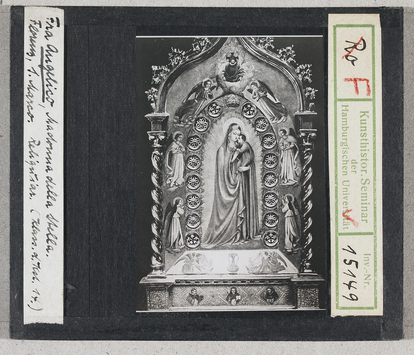 Fra Angelico Madonna della Stella.
Florenz, S. Marco Reliquiar. (Klass. d. Kst. 14.)
Ro F
Kunsthistor. Seminar
der
Hamburgischen Universität
Inv.-Nr.
15149